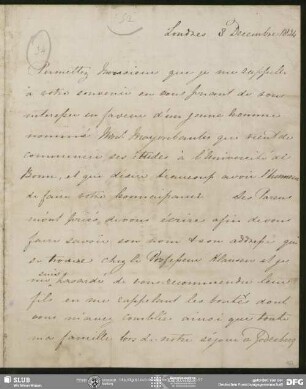 Londres 8 Decembre 1834
Permettez Monsieur que je me rappelle
à votre souvenir en vous priant de vous
interesser en faveur d'un jeune homme
nommé qui vient de
commencer ses études à l'Université de
Bonn, et qui desire beaucoup avoir l'honneur
de faire votre connoissance. Ses Parens
m'ont prié de vous écrire afin de vous
faire savoir son nom & son addresse qui
se trouve chez le Professeur et je
me suis hasardé de vous recommender leur
fils en me rappelant les bontés dont
vous m'avez comblée ainsi que toute
ma famille lors de notre séjour à Godesberg
SLUB
Wir führen Wissen.